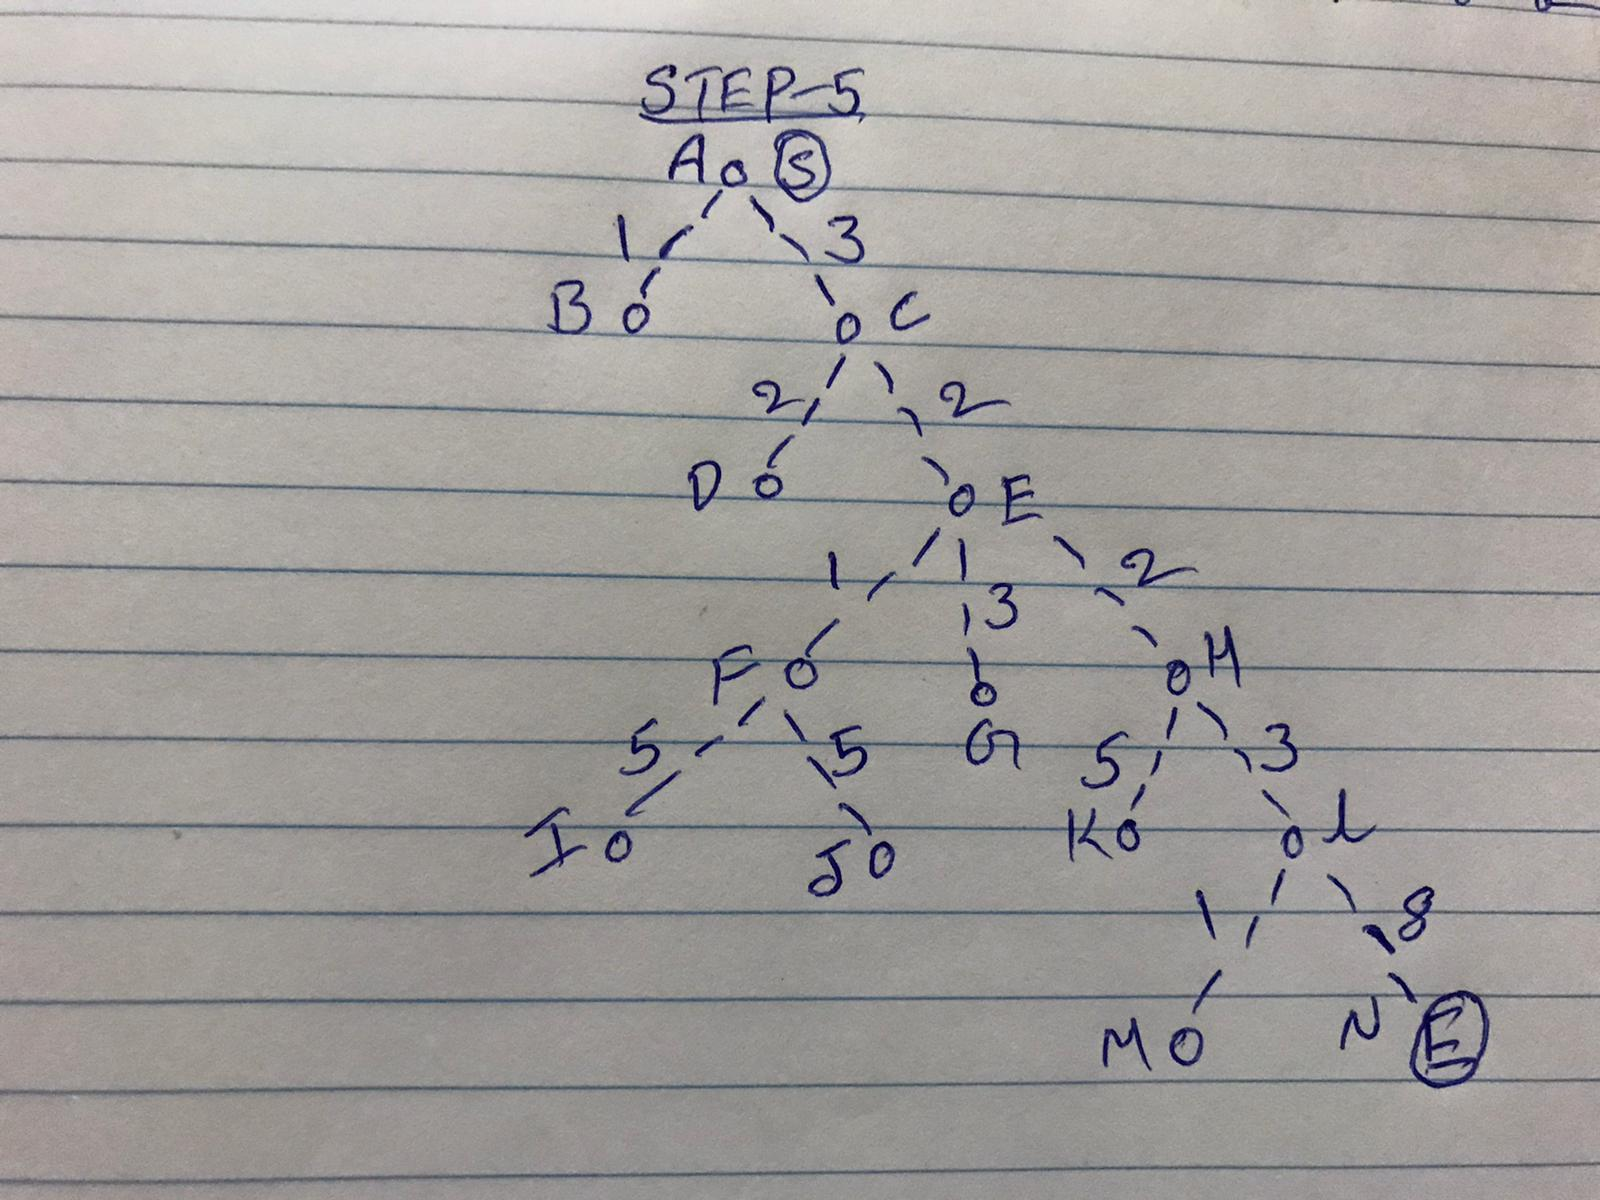 STEP-5
A S
1 3
B C
2 2
D E
1 3 2
F H
G
5 5 5 3
I J K l
1 8
M N E